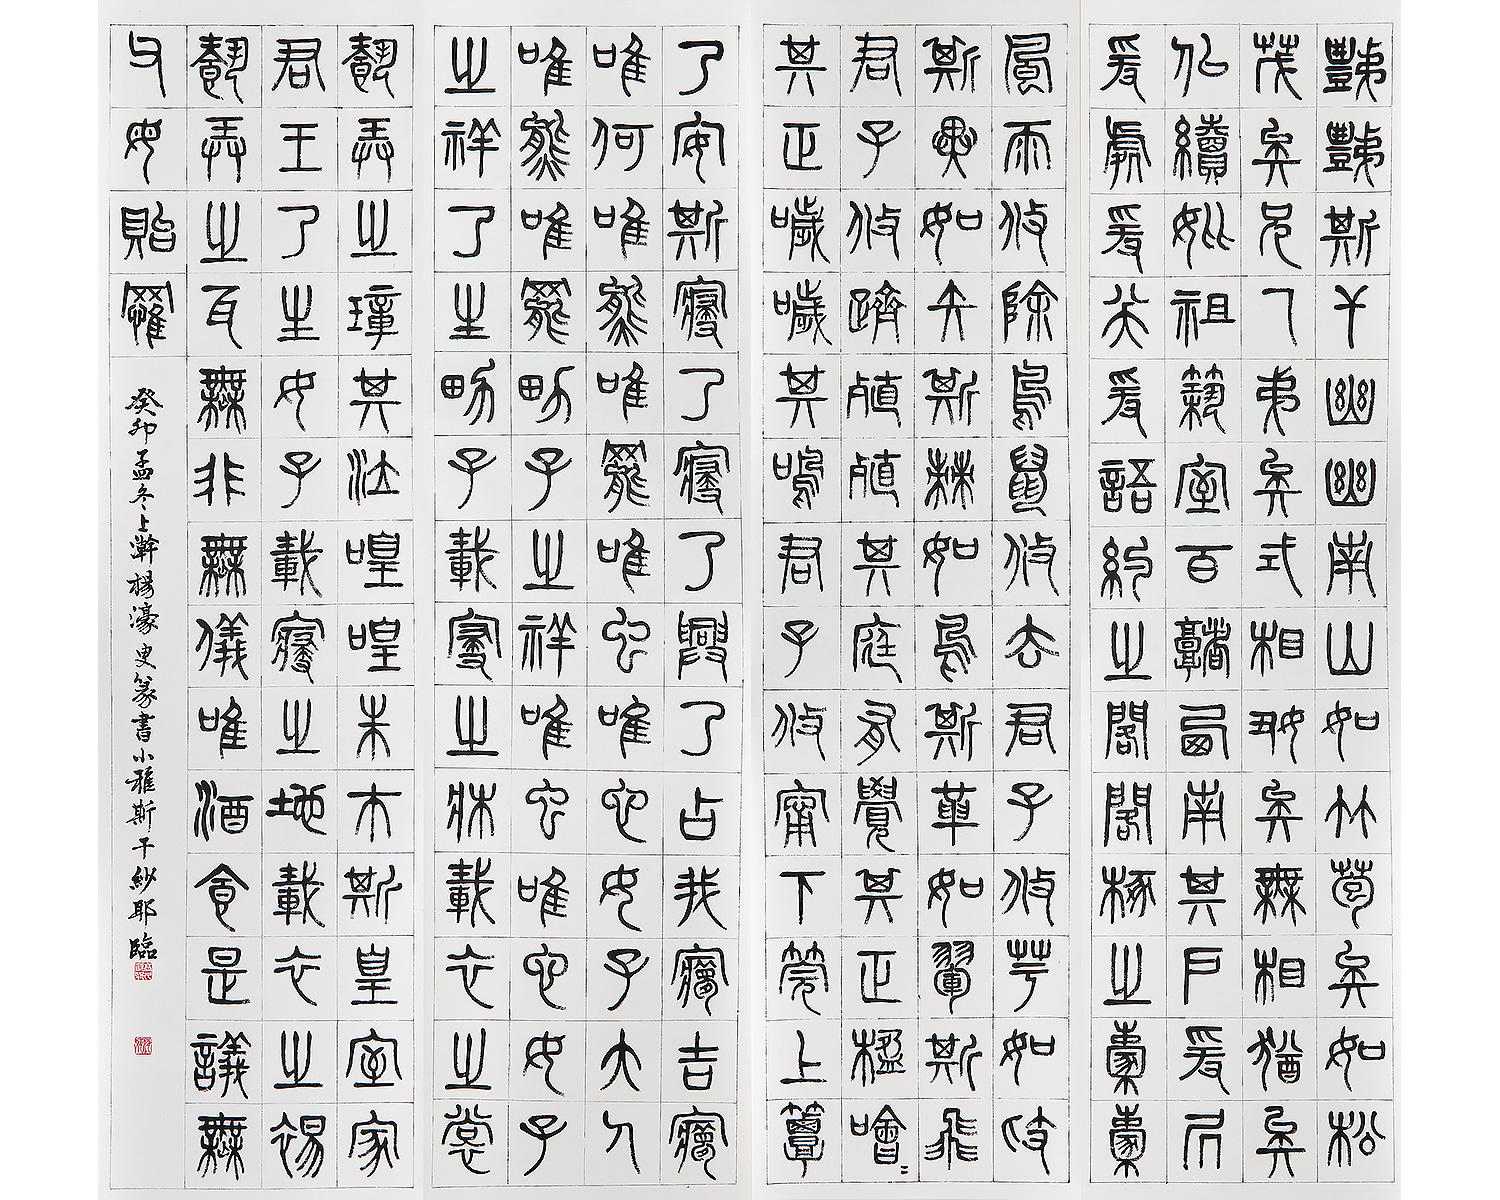 豑豑斯干幽幽南山如竹苞矣如松
茂矣兄及弟矣式相好矣無相猶矣
佀續妣祖築室百堵西南其戶爰凥
爰處爰笑爰語約之閣閣椓之橐橐
風雨攸除鳥鼠攸去君子攸芋如跂
斯翼如矢斯棘如鳥斯革如翬斯飛
君子攸躋殖殖其庭有覺其正楹噲
其正噦噦其鳴君子攸寧下莞上簟
乃安斯寢乃寢乃興乃占我夢吉夢
唯何唯熊唯羆唯虫唯它女子大人
唯熊唯羆男子之祥唯虫唯它女子
之祥乃生男子載寢之牀載衣之裳
載弄之璋其泣喤喤朱巿斯皇室家
君王乃生女子載寢之地載衣之裼
載弄之瓦無非無儀唯酒食是議無
父母貽罹
癸卯孟冬上澣楊濠叟篆書小雅斯干紗耶臨